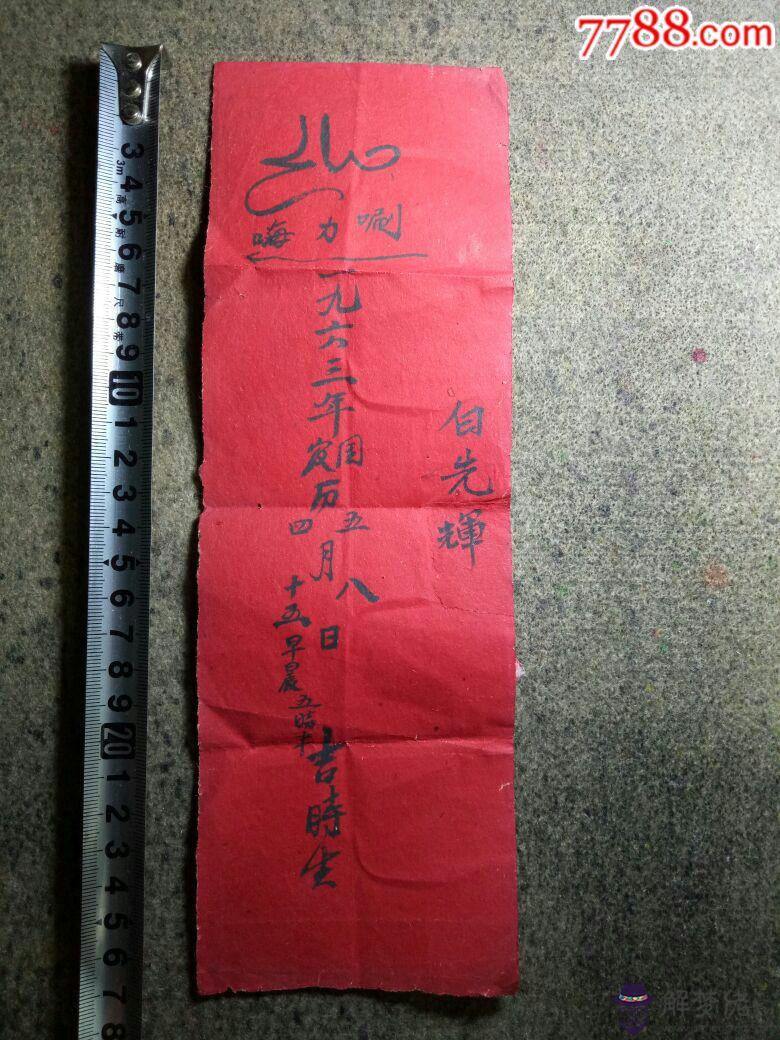 7788.com
صالح
唰力嗨
白先輝
一九六三年
国五八
农历四十五
月日
早晨五時半
吉時生
3 4 5 6 7 8 9 10 1 2 3 4 5 6 7 8 9 20 1 2 3 4 5 6 7 8
3m 高耐磨尺带